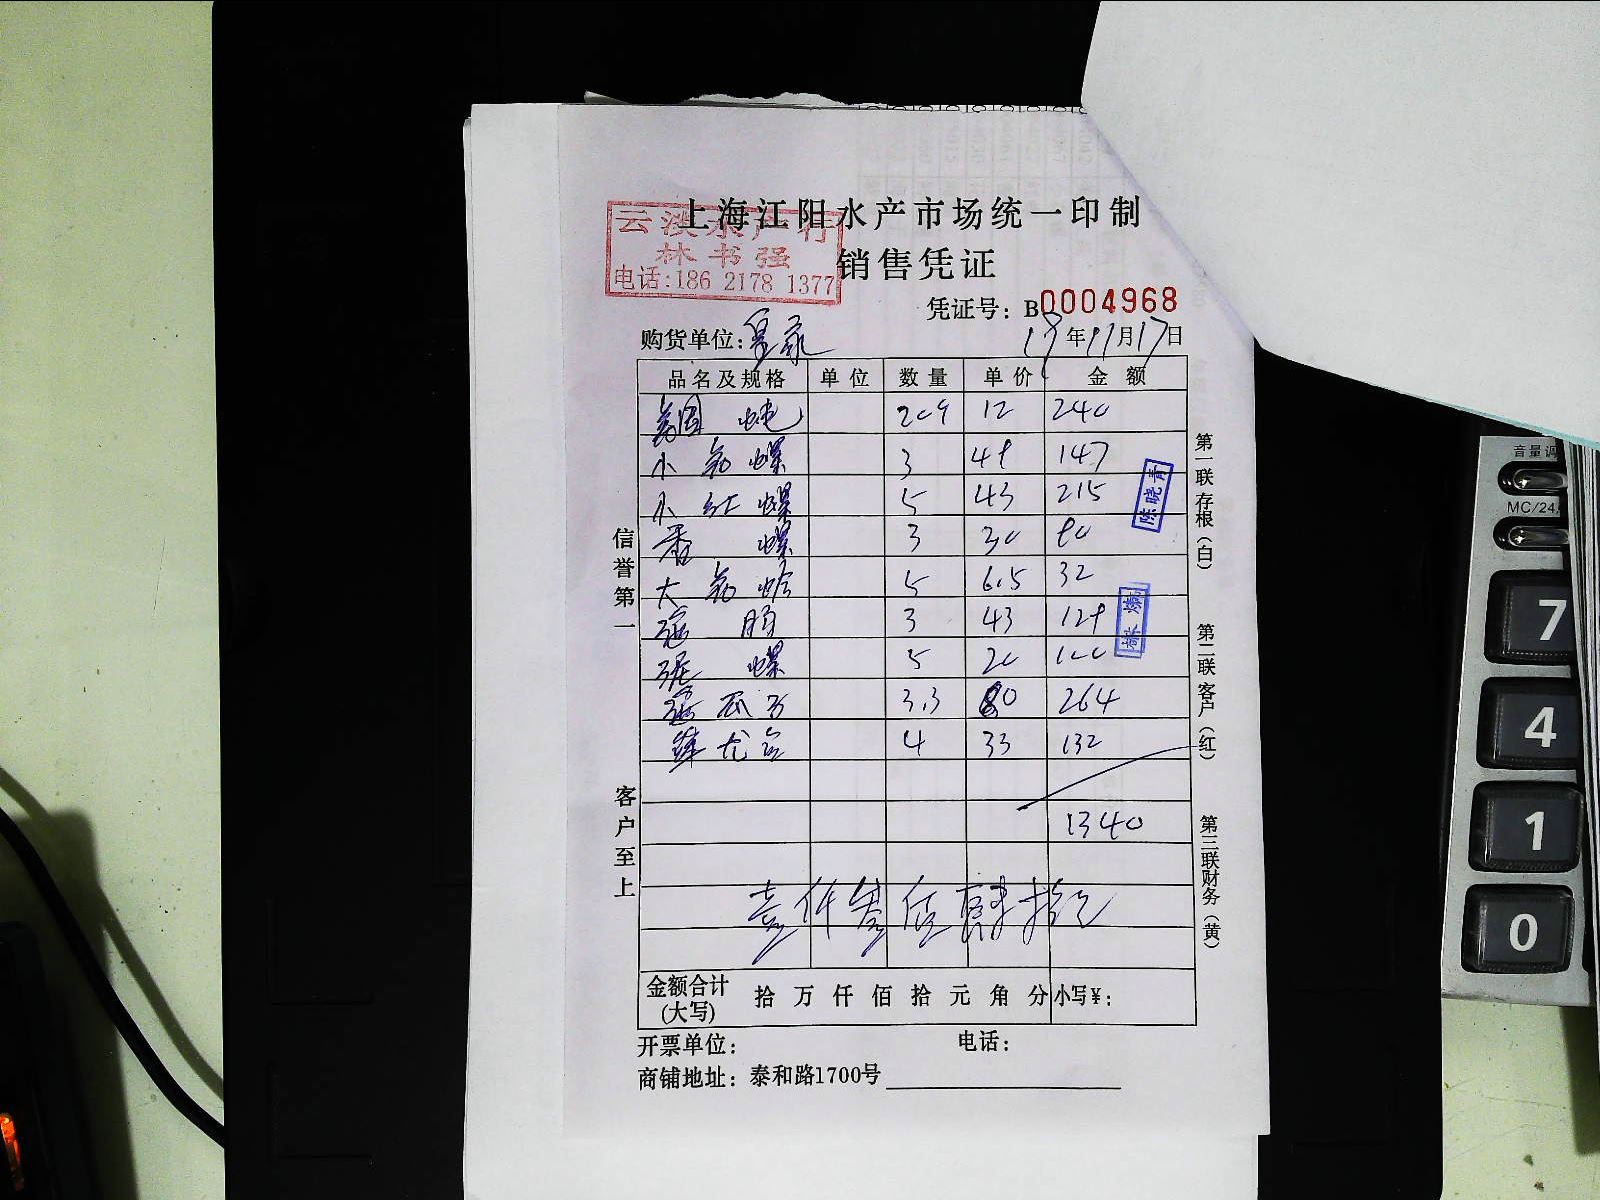 上海江阳水产市场统一印制
云淡水产行
林书强
电话:186 2178 1377
销售凭证
凭证号: B0004968
购货单位:
19年11月17日
品名及规格 单位 数量 单价 金额
美国 20斤 12 240
小 螺 3 49 147
小红螺 5 43 215
香螺 3 30 90
大 蛤 5 6.5 32
3 43 129
螺 5 20 100
瓜子 3.3 80 264
4 33 132
1340
壹仟叁佰肆拾元
金额合计(大写) 拾 万 仟 佰 拾 元 角 分 小写¥:
开票单位: 电话:
商铺地址: 泰和路1700号
信誉第一
客户至上
第一联存根(白)
第二联客户(红)
第三联财务(黄)
陈晓青
音量调
MC/24
7
4
1
0